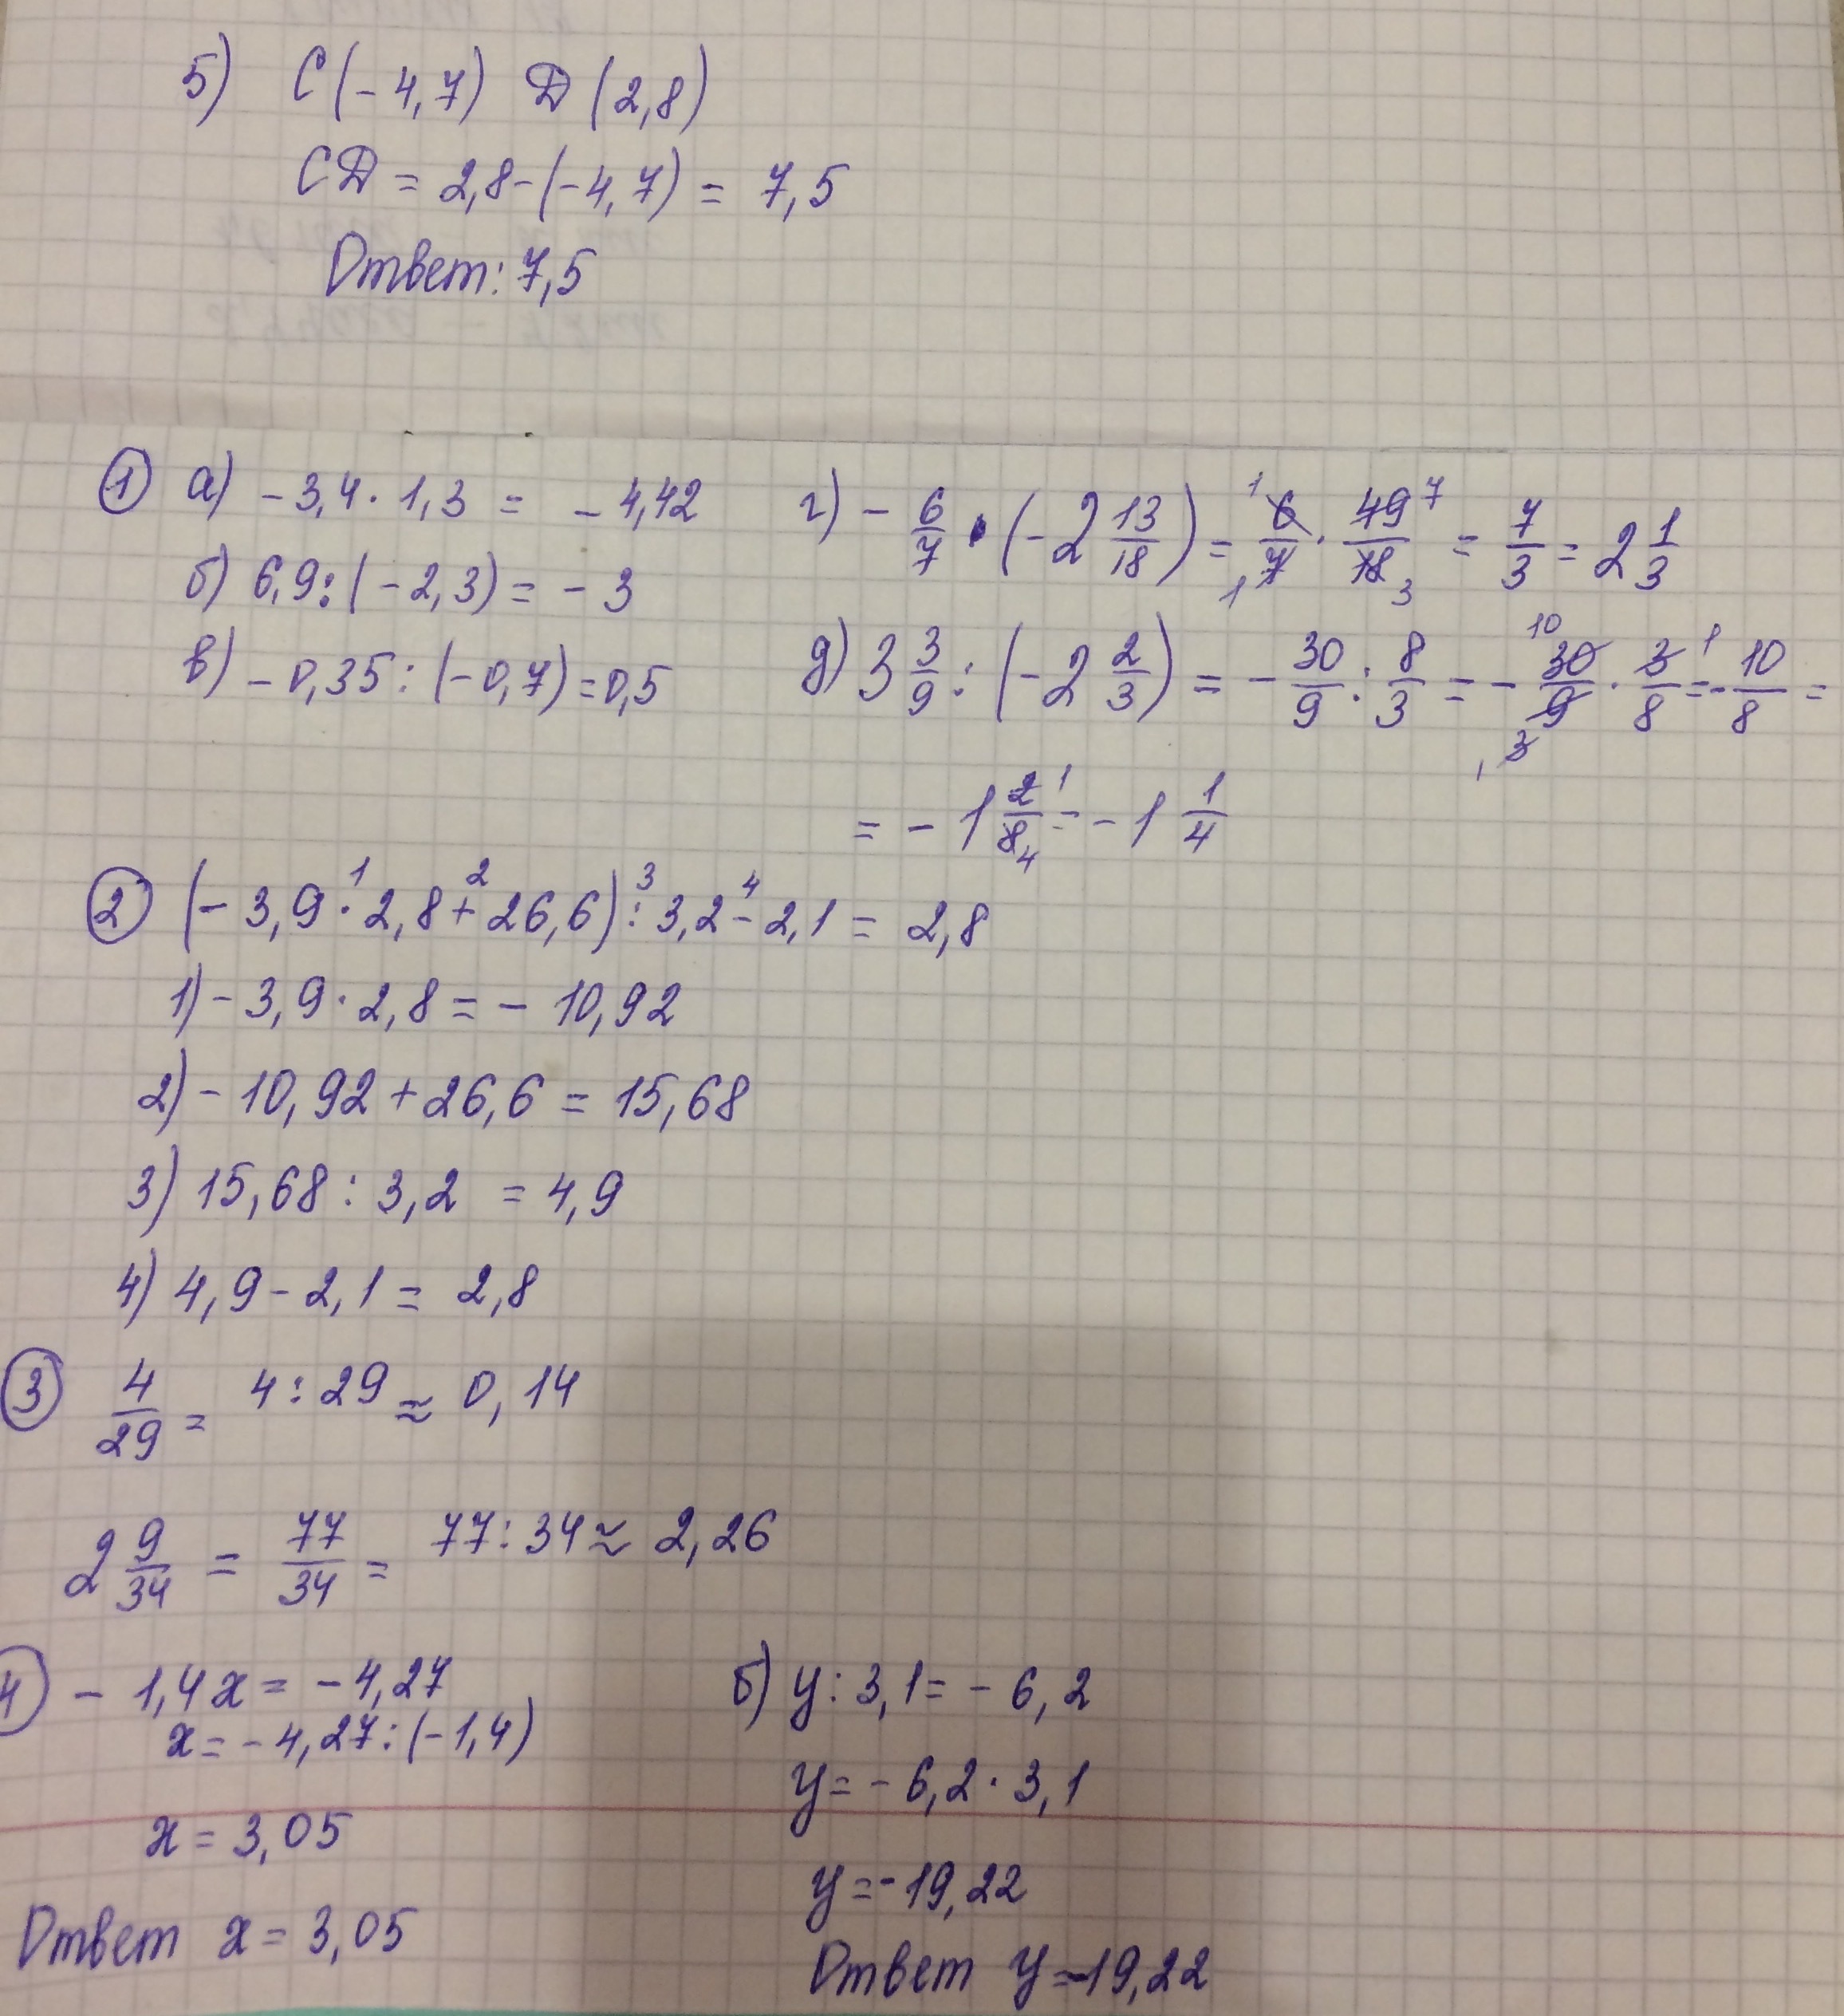 5) C(-4,7) D(2,8)
CD = 2,8-(-4,7) = 7,5
Ответ: 7,5
① а) -3,4·1,3 = -4,42
б) 6,9:(-2,3) = -3
в) -0,35:(-0,7)=0,5
г) - 6/7 · (-2 13/18) = 6/7 · 49/18 = 7/3 = 2 1/3
д) 3 3/9 : (-2 2/3) = - 30/9 : 8/3 = - 30/9 · 3/8 = - 10/8 =
= -1 2/8 = -1 1/4
② (-3,9·2,8+26,6):3,2-2,1 = 2,8
1) -3,9·2,8 = -10,92
2) -10,92+26,6 = 15,68
3) 15,68 : 3,2 = 4,9
4) 4,9-2,1 = 2,8
③ 4/29 = 4:29 ≈ 0,14
2 9/34 = 77/34 = 77:34 ≈ 2,26
④ -1,4x = -4,27
x = -4,27:(-1,4)
x = 3,05
Ответ x = 3,05
б) y:3,1 = -6,2
y = -6,2·3,1
y = -19,22
Ответ y = -19,22